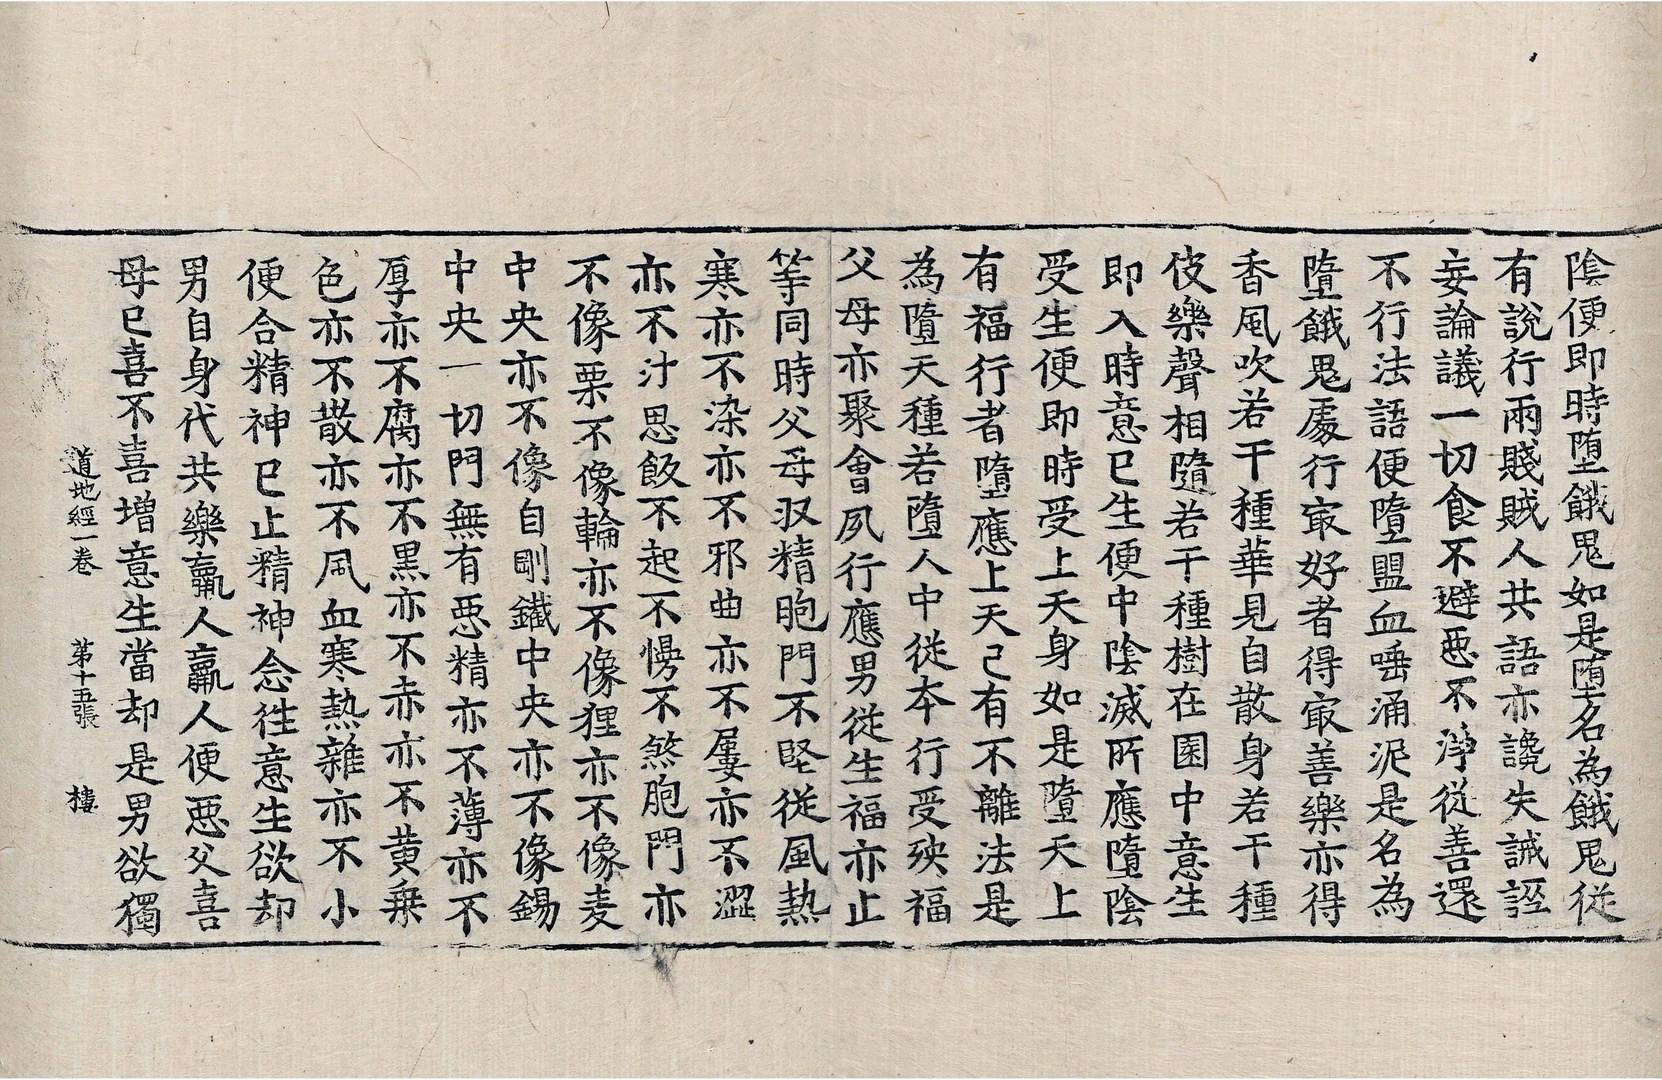 陰便即時墮餓鬼如是墮名為餓鬼従
有說行兩賤賊人共語亦讒失誡誣
妄論議一切食不避惡不淨従善還
不行法語便墮盟血唾涌泥是名為
墮餓鬼處行㝡好者得㝡善樂亦得
香風吹若干種華見自散身若干種
伎樂聲相隨若干種樹在園中意生
即入時意已生便中陰滅所應墮陰
受生便即時受上天身如是墮天上
有福行者墮應上天已有不離法是
為墮天種若墮人中従本行受殃福
父母亦聚會夙行應男従生福亦止
等同時父母䨇精胞門不堅従風熱
寒亦不染亦不邪曲亦不屢亦不澀
亦不汁思飯不起不慢不煞胞門亦
不像栗不像輪亦不像狸亦不像麦
中央亦不像自剛鐵中央亦不像錫
中央一切門無有惡精亦不薄亦不
厚亦不腐亦不黑亦不赤亦不黄乗
色亦不散亦不風血寒熱雜亦不小
便合精神已止精神念徃意生欲却
男自身代共樂羸人羸人便惡父喜
母已喜不喜增意生當却是男欲獨
道地經一卷 第十五張 樓